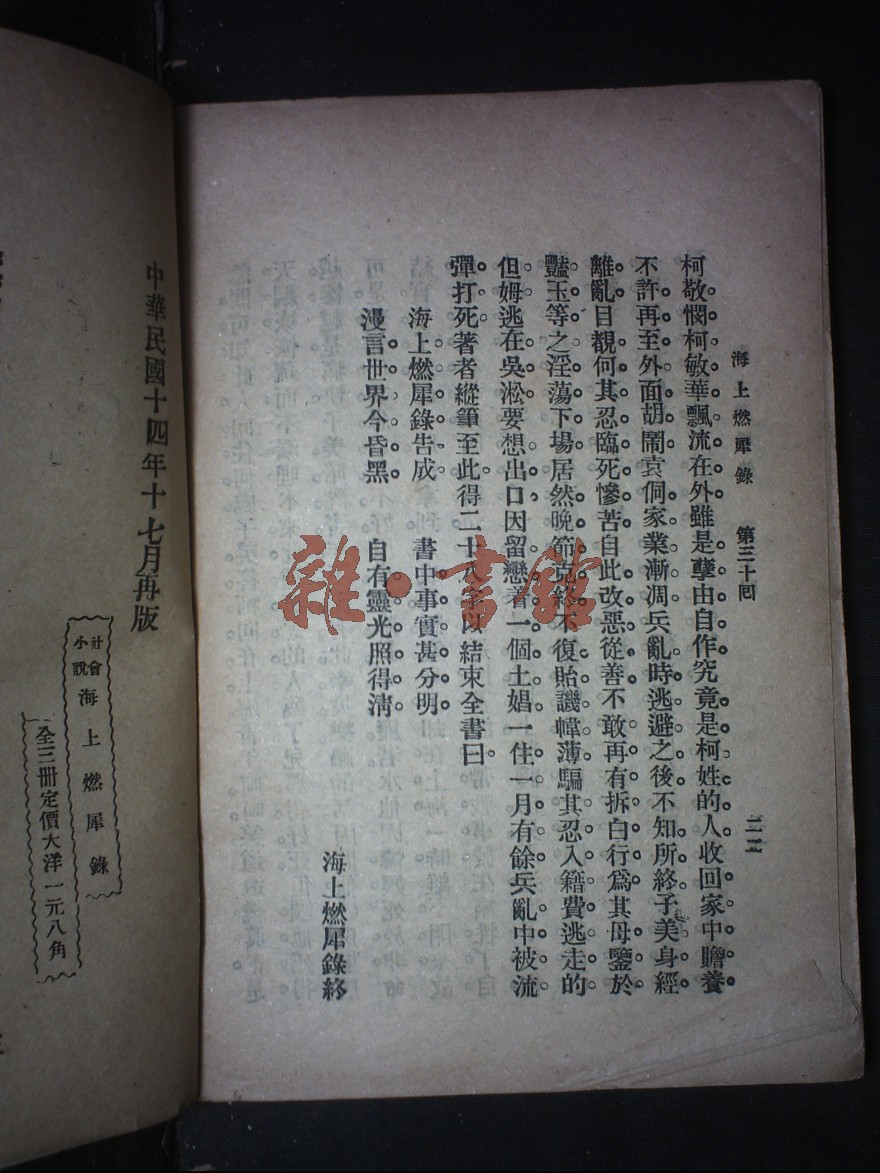 海上燃犀錄　第三十回　二二
柯敬憫柯敏華飄流在外雖是孽由自作究竟是柯姓的人收回家中贍養
不許再至外面胡鬧袁侗家業漸凋兵亂時逃避之後不知所終子美身經
離亂目覩何其忍臨死慘苦自此改惡從善不敢再有拆白行爲其母鑒於
豔玉等之淫蕩下場居然晚節克終不復貽譏幃薄騙其忍入籍費逃走的
但姆逃在吳淞要想出口因留戀着一個土娼一住一月有餘兵亂中被流
彈打死著者縱筆至此得二十八字以結束全書曰
海上燃犀錄告成　書中事實甚分明
漫言世界今昏黑　自有靈光照得清
海上燃犀錄終
雜·書館
中華民國十四年十七月再版
社會小說海上燃犀錄
全三冊定價大洋一元八角